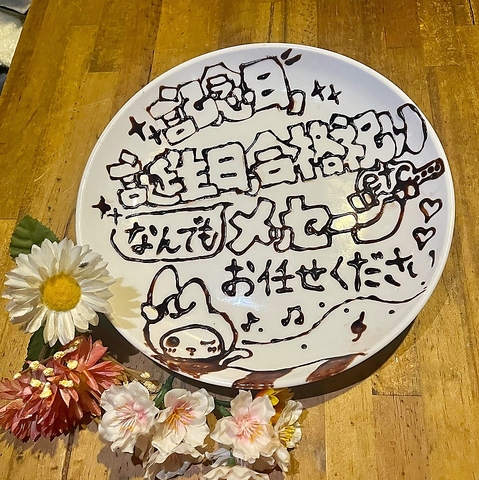 記念日、
誕生日、合格祝い
etc
なんでもメッセージ
お任せください